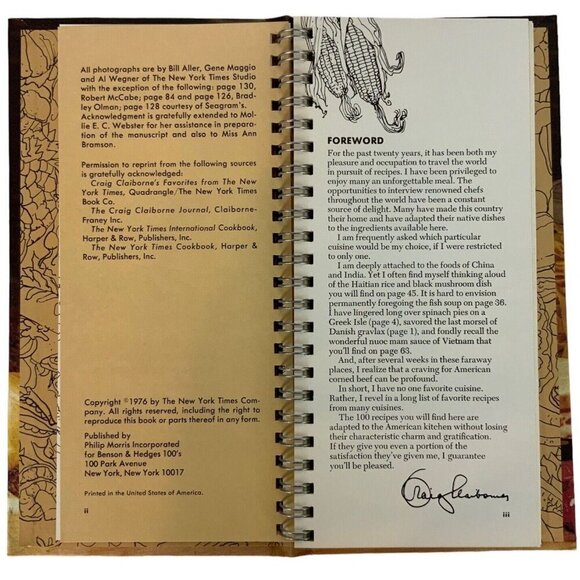 All photographs are by Bill Aller, Gene Maggio
and Al Wegner of The New York Times Studio
with the exception of the following: page 130,
Robert McCabe; page 84 and page 126, Brad-
ley Olman; page 128 courtesy of Seagram's.
Acknowledgment is gratefully extended to Mol-
lie E. C. Webster for her assistance in prepara-
tion of the manuscript and also to Miss Ann
Bramson.
Permission to reprint from the following sources
is gratefully acknowledged:
Craig Claiborne's Favorites from The New
York Times, Quadrangle/The New York Times
Book Co.
The Craig Claiborne Journal, Claiborne-
Franey Inc.
The New York Times International Cookbook,
Harper & Row, Publishers, Inc.
The New York Times Cookbook, Harper &
Row, Publishers, Inc.
Copyright ©1976 by The New York Times Com-
pany. All rights reserved, including the right to
reproduce this book or parts thereof in any form.
Published by
Philip Morris Incorporated
for Benson & Hedges 100's
100 Park Avenue
New York, New York 10017
Printed in the United States of America.
ii
FOREWORD
For the past twenty years, it has been both my
pleasure and occupation to travel the world
in pursuit of recipes. I have been privileged to
enjoy many an unforgettable meal. The
opportunities to interview renowned chefs
throughout the world have been a constant
source of delight. Many have made this country
their home and have adapted their native dishes
to the ingredients available here.
I am frequently asked which particular
cuisine would be my choice, if I were restricted
to only one.
I am deeply attached to the foods of China
and India. Yet I often find myself thinking aloud
of the Haitian rice and black mushroom dish
you will find on page 45. It is hard to envision
permanently foregoing the fish soup on page 36.
I have lingered long over spinach pies on a
Greek Isle (page 4), savored the last morsel of
Danish gravlax (page 1), and fondly recall the
wonderful nuoc mam sauce of Vietnam that
you'll find on page 63.
And, after several weeks in these faraway
places, I realize that a craving for American
corned beef can be profound.
In short, I have no one favorite cuisine.
Rather, I revel in a long list of favorite recipes
from many cuisines.
The 100 recipes you will find here are
adapted to the American kitchen without losing
their characteristic charm and gratification.
If they give you even a portion of the
satisfaction they've given me, I guarantee
you'll be pleased.
Craig Claiborne
iii